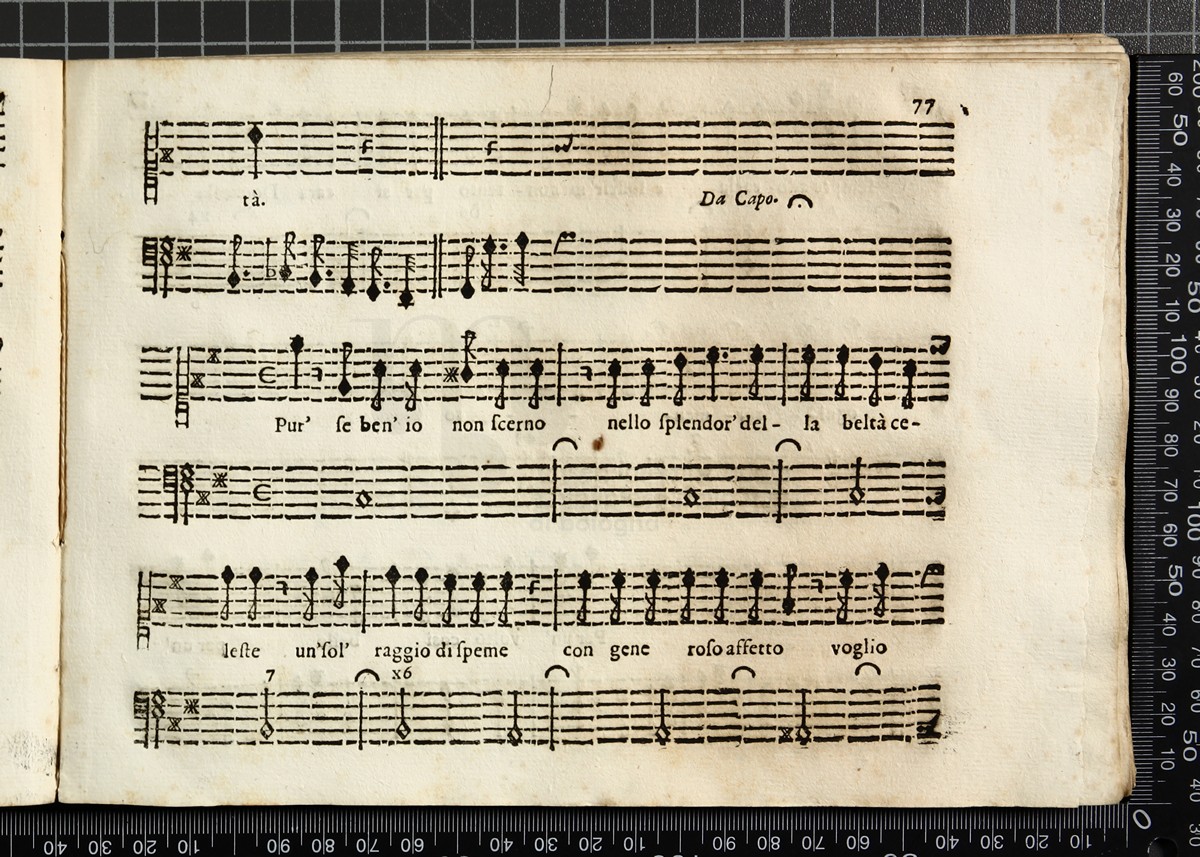 77
tà.
Da Capo.
Pur' ſe ben' io non ſcerno nello ſplendor' del- la beltà ce-
leſte un' ſol' raggio di ſpeme con gene roſo affetto voglio
7 x6